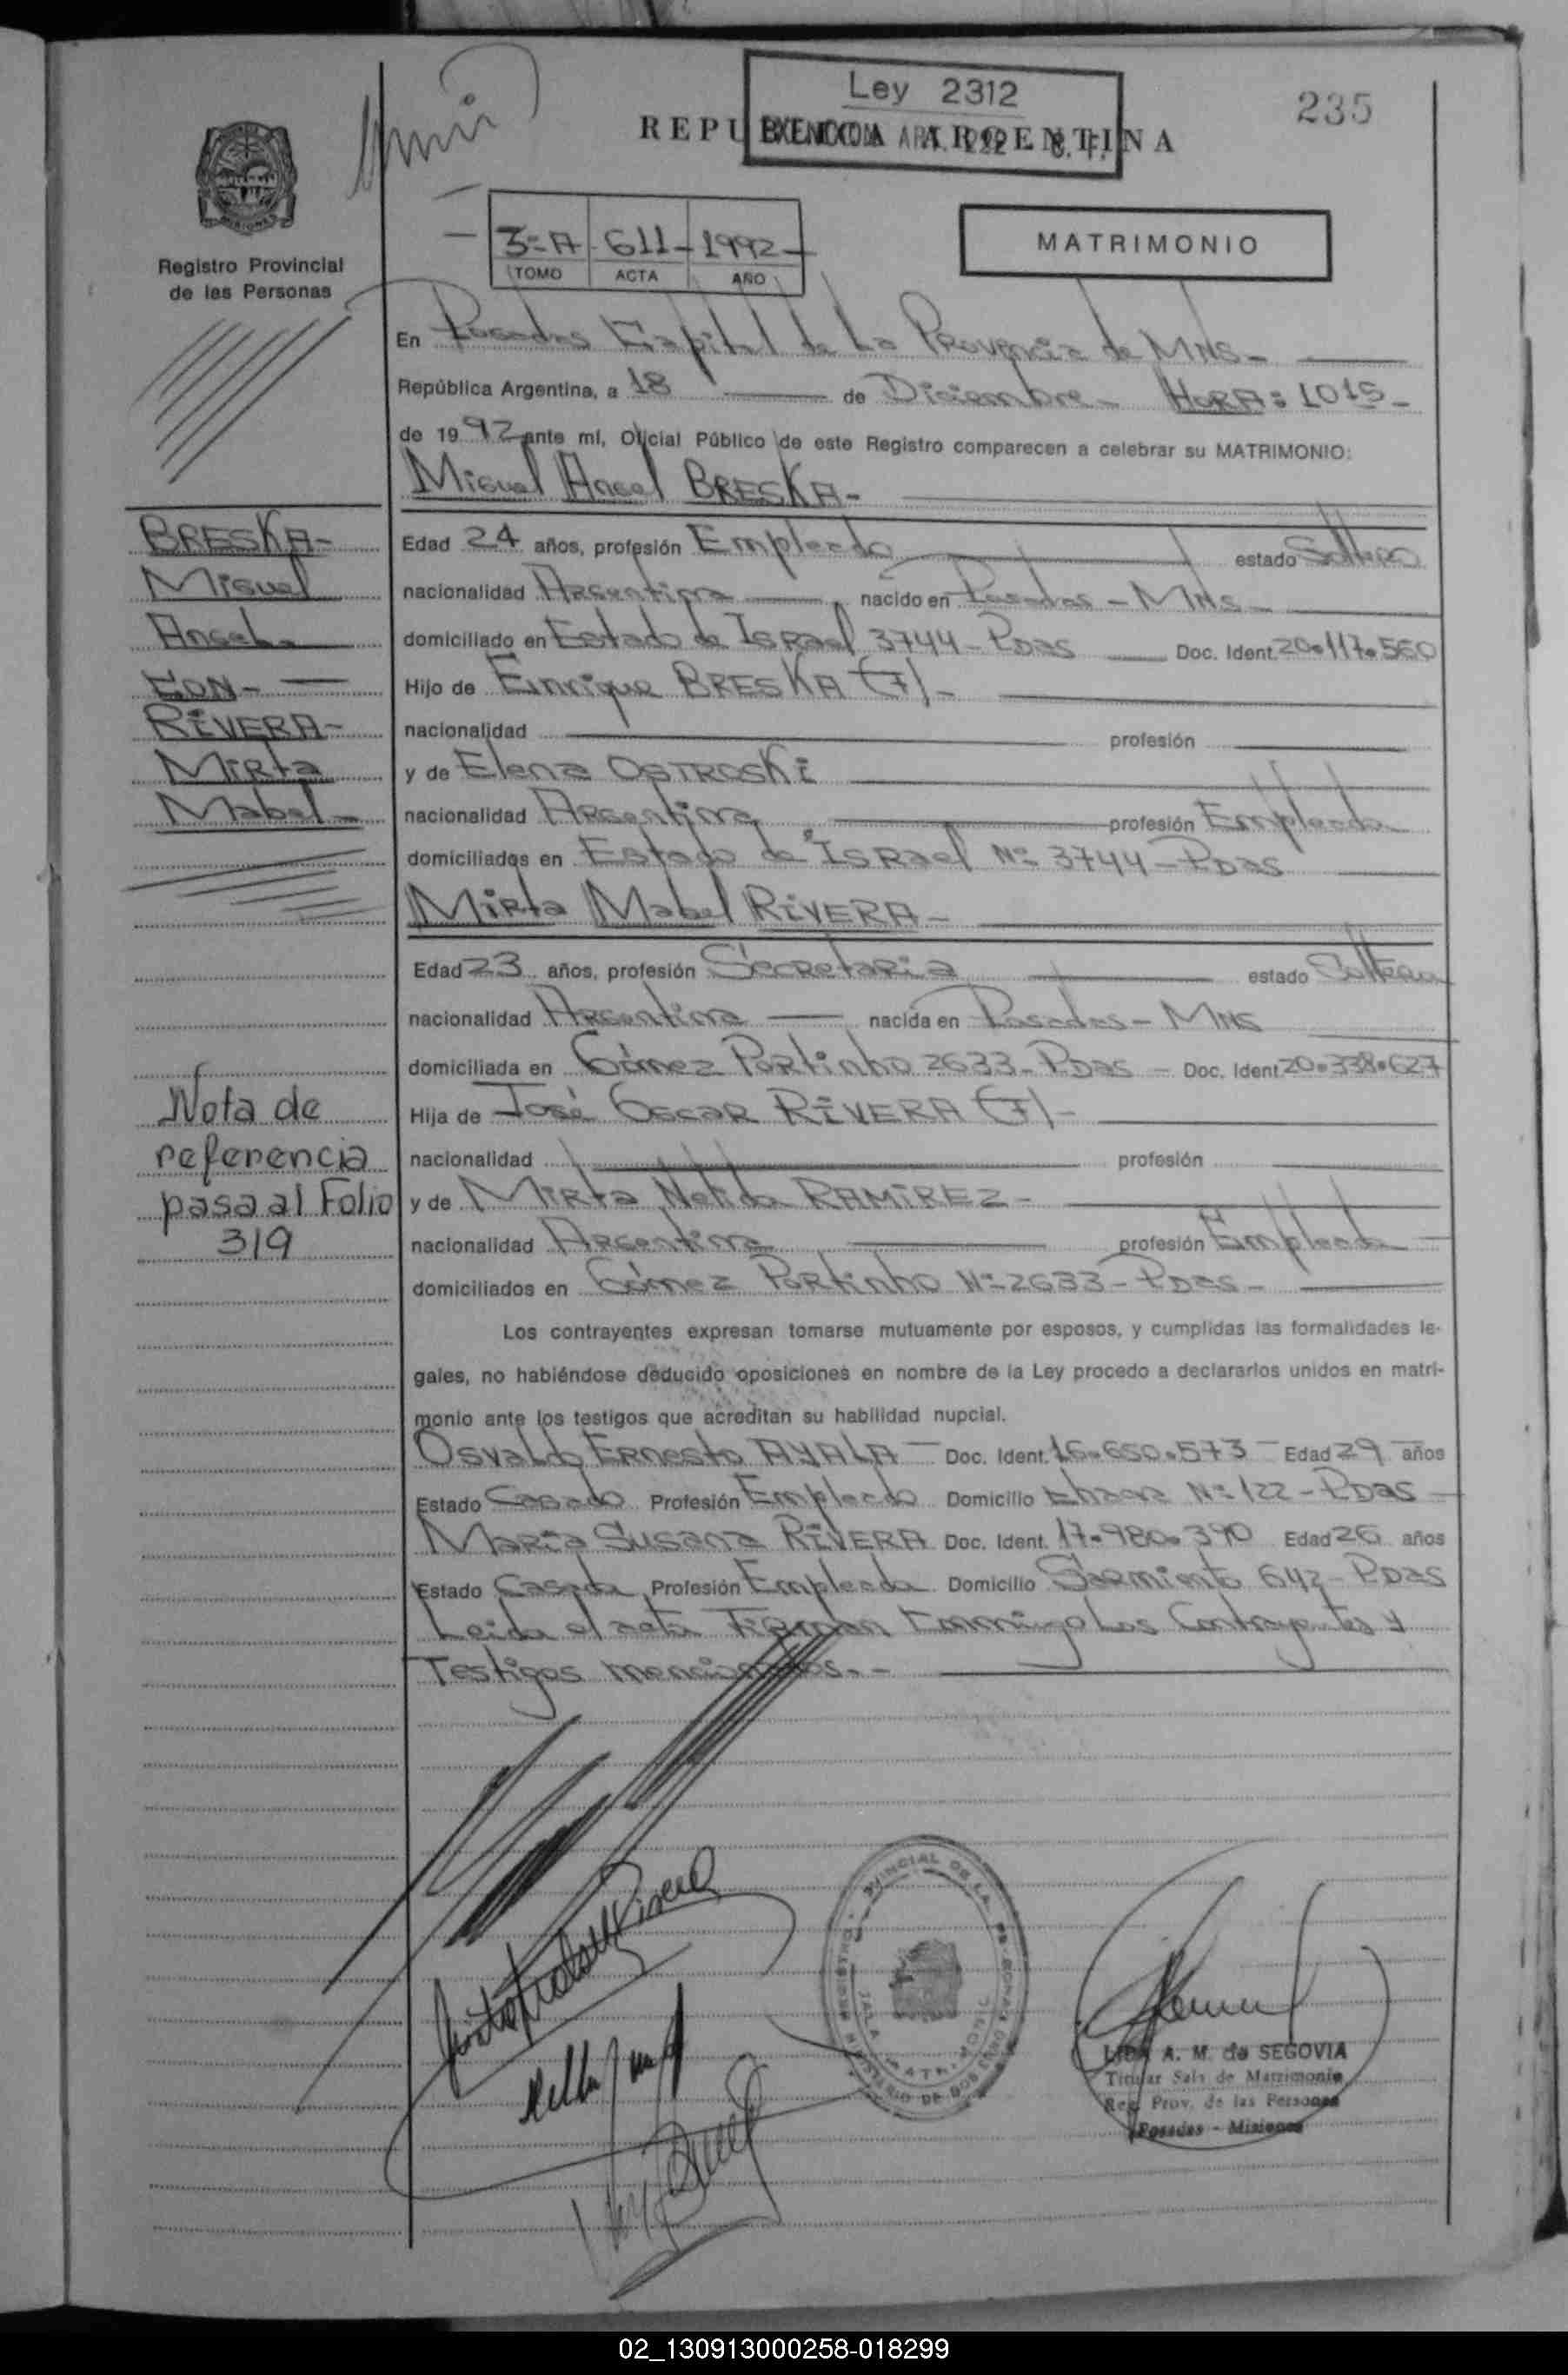 Ley 2312
235
REPUBLICA ARGENTINA
MISIONES
Registro Provincial
de las Personas
3º A - 611 - 1992 -
TOMO ACTA AÑO
MATRIMONIO
En Posadas Capital de La Provincia de MNS -
República Argentina, a 18 de Diciembre - HORA: 1015 -
de 1992 ante mí, Oficial Público de este Registro comparecen a celebrar su MATRIMONIO:
Miguel Angel BRESKA -
Edad 24 años, profesión Empleado estado Soltero
nacionalidad Argentina nacido en Posadas - MNS -
domiciliado en Estado de Israel 3744 - Pdas Doc. Ident. 20.117.560
Hijo de Enrique BRESKA (F) -
nacionalidad profesión
y de Elena OSTROSKI
nacionalidad Argentina profesión Empleada
domiciliados en Estado de Israel Nº 3744 - Pdas
Mirta Mabel RIVERA -
Edad 23 años, profesión Secretaria estado Soltera
nacionalidad Argentina nacida en Posadas - MNS
domiciliada en Gómez Portinho 2633 - Pdas - Doc. Ident 20.338.627
Hija de José Oscar RIVERA (F) -
nacionalidad profesión
y de Mirta Nelida RAMIREZ -
nacionalidad Argentina profesión Empleada
domiciliados en Gómez Portinho Nº 2633 - Pdas -
Los contrayentes expresan tomarse mutuamente por esposos, y cumplidas las formalidades le-
gales, no habiéndose deducido oposiciones en nombre de la Ley procedo a declararlos unidos en matri-
monio ante los testigos que acreditan su habilidad nupcial.
Osvaldo Ernesto AYALA - Doc. Ident. 16.650.573 - Edad 29 años
Estado Casado Profesión Empleado Domicilio Nº 122 - Pdas
Maria Susana RIVERA Doc. Ident. 17.980.390 Edad 26 años
Estado Casada Profesión Empleada Domicilio Sarmiento 642 - Pdas
Leida el acta Firman Conmigo Los Contrayentes y
Testigos mencionados. -
BRESKA -
Miguel
Angel -
CON -
RIVERA -
Mirta
Mabel -
Nota de
referencia
pasa al Folio
319
A. M. de SEGOVIA
Titular Sala de Matrimonio
Reg. Prov. de las Personas
Posadas - Misiones
02_130913000258-018299